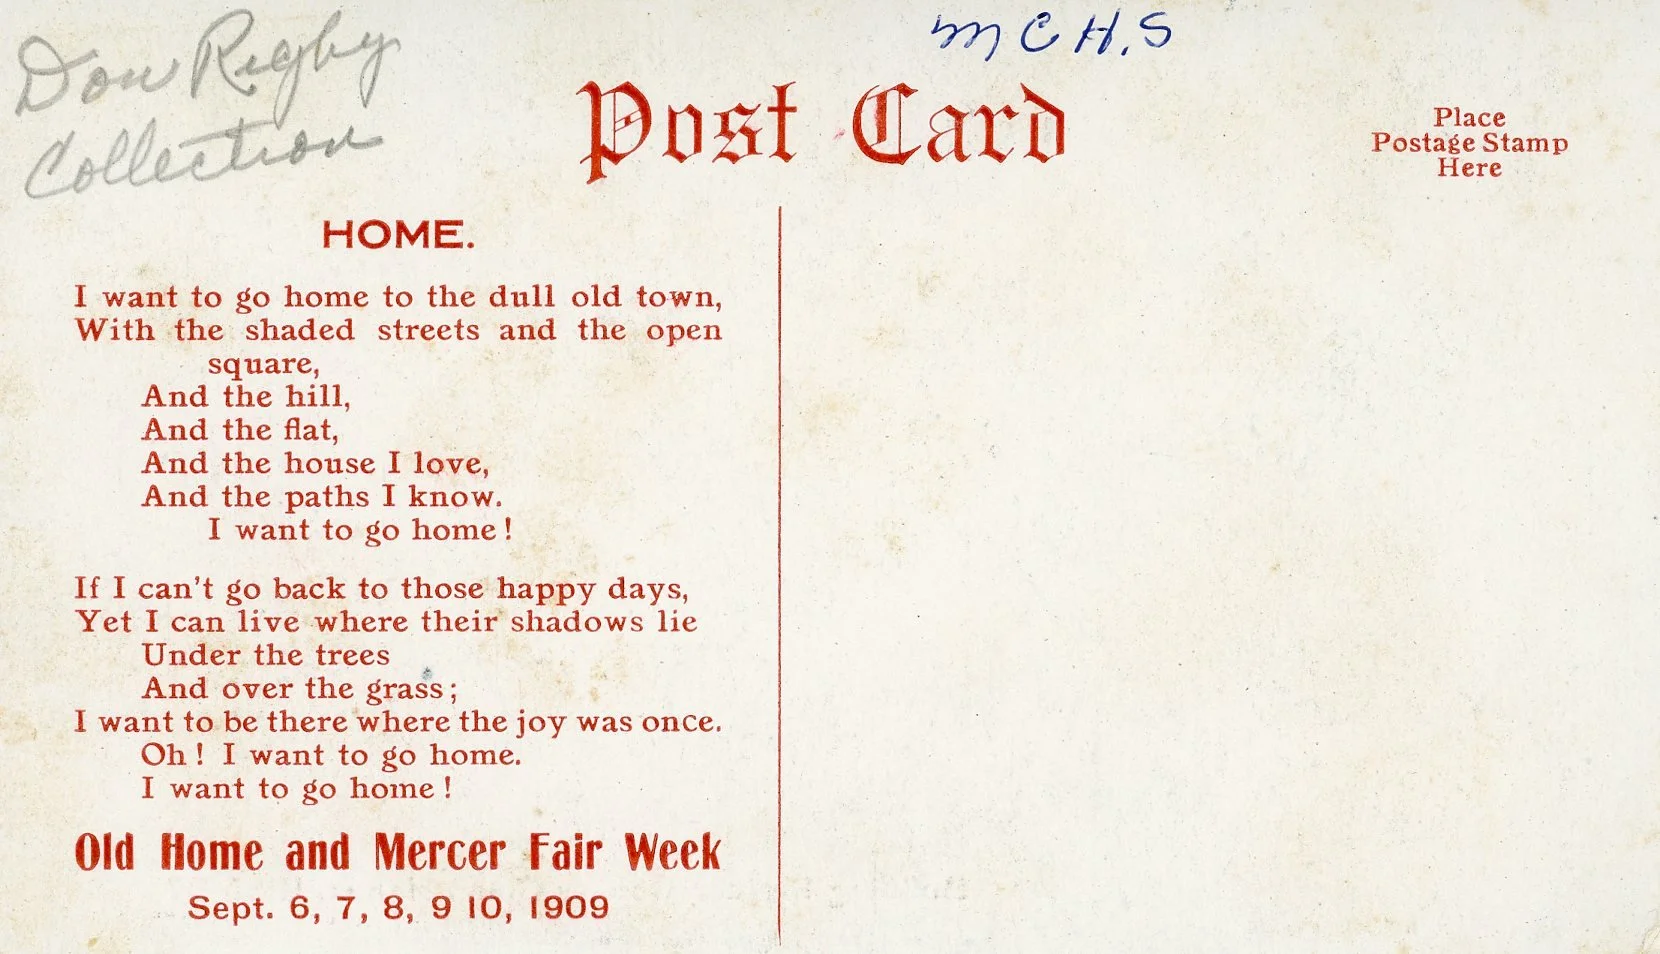 Don Rigby
Collection
M C H. S
Post Card
Place
Postage Stamp
Here
HOME.
I want to go home to the dull old town,
With the shaded streets and the open
square,
And the hill,
And the flat,
And the house I love,
And the paths I know.
I want to go home!
If I can't go back to those happy days,
Yet I can live where their shadows lie
Under the trees
And over the grass;
I want to be there where the joy was once.
Oh! I want to go home.
I want to go home!
Old Home and Mercer Fair Week
Sept. 6, 7, 8, 9 10, 1909